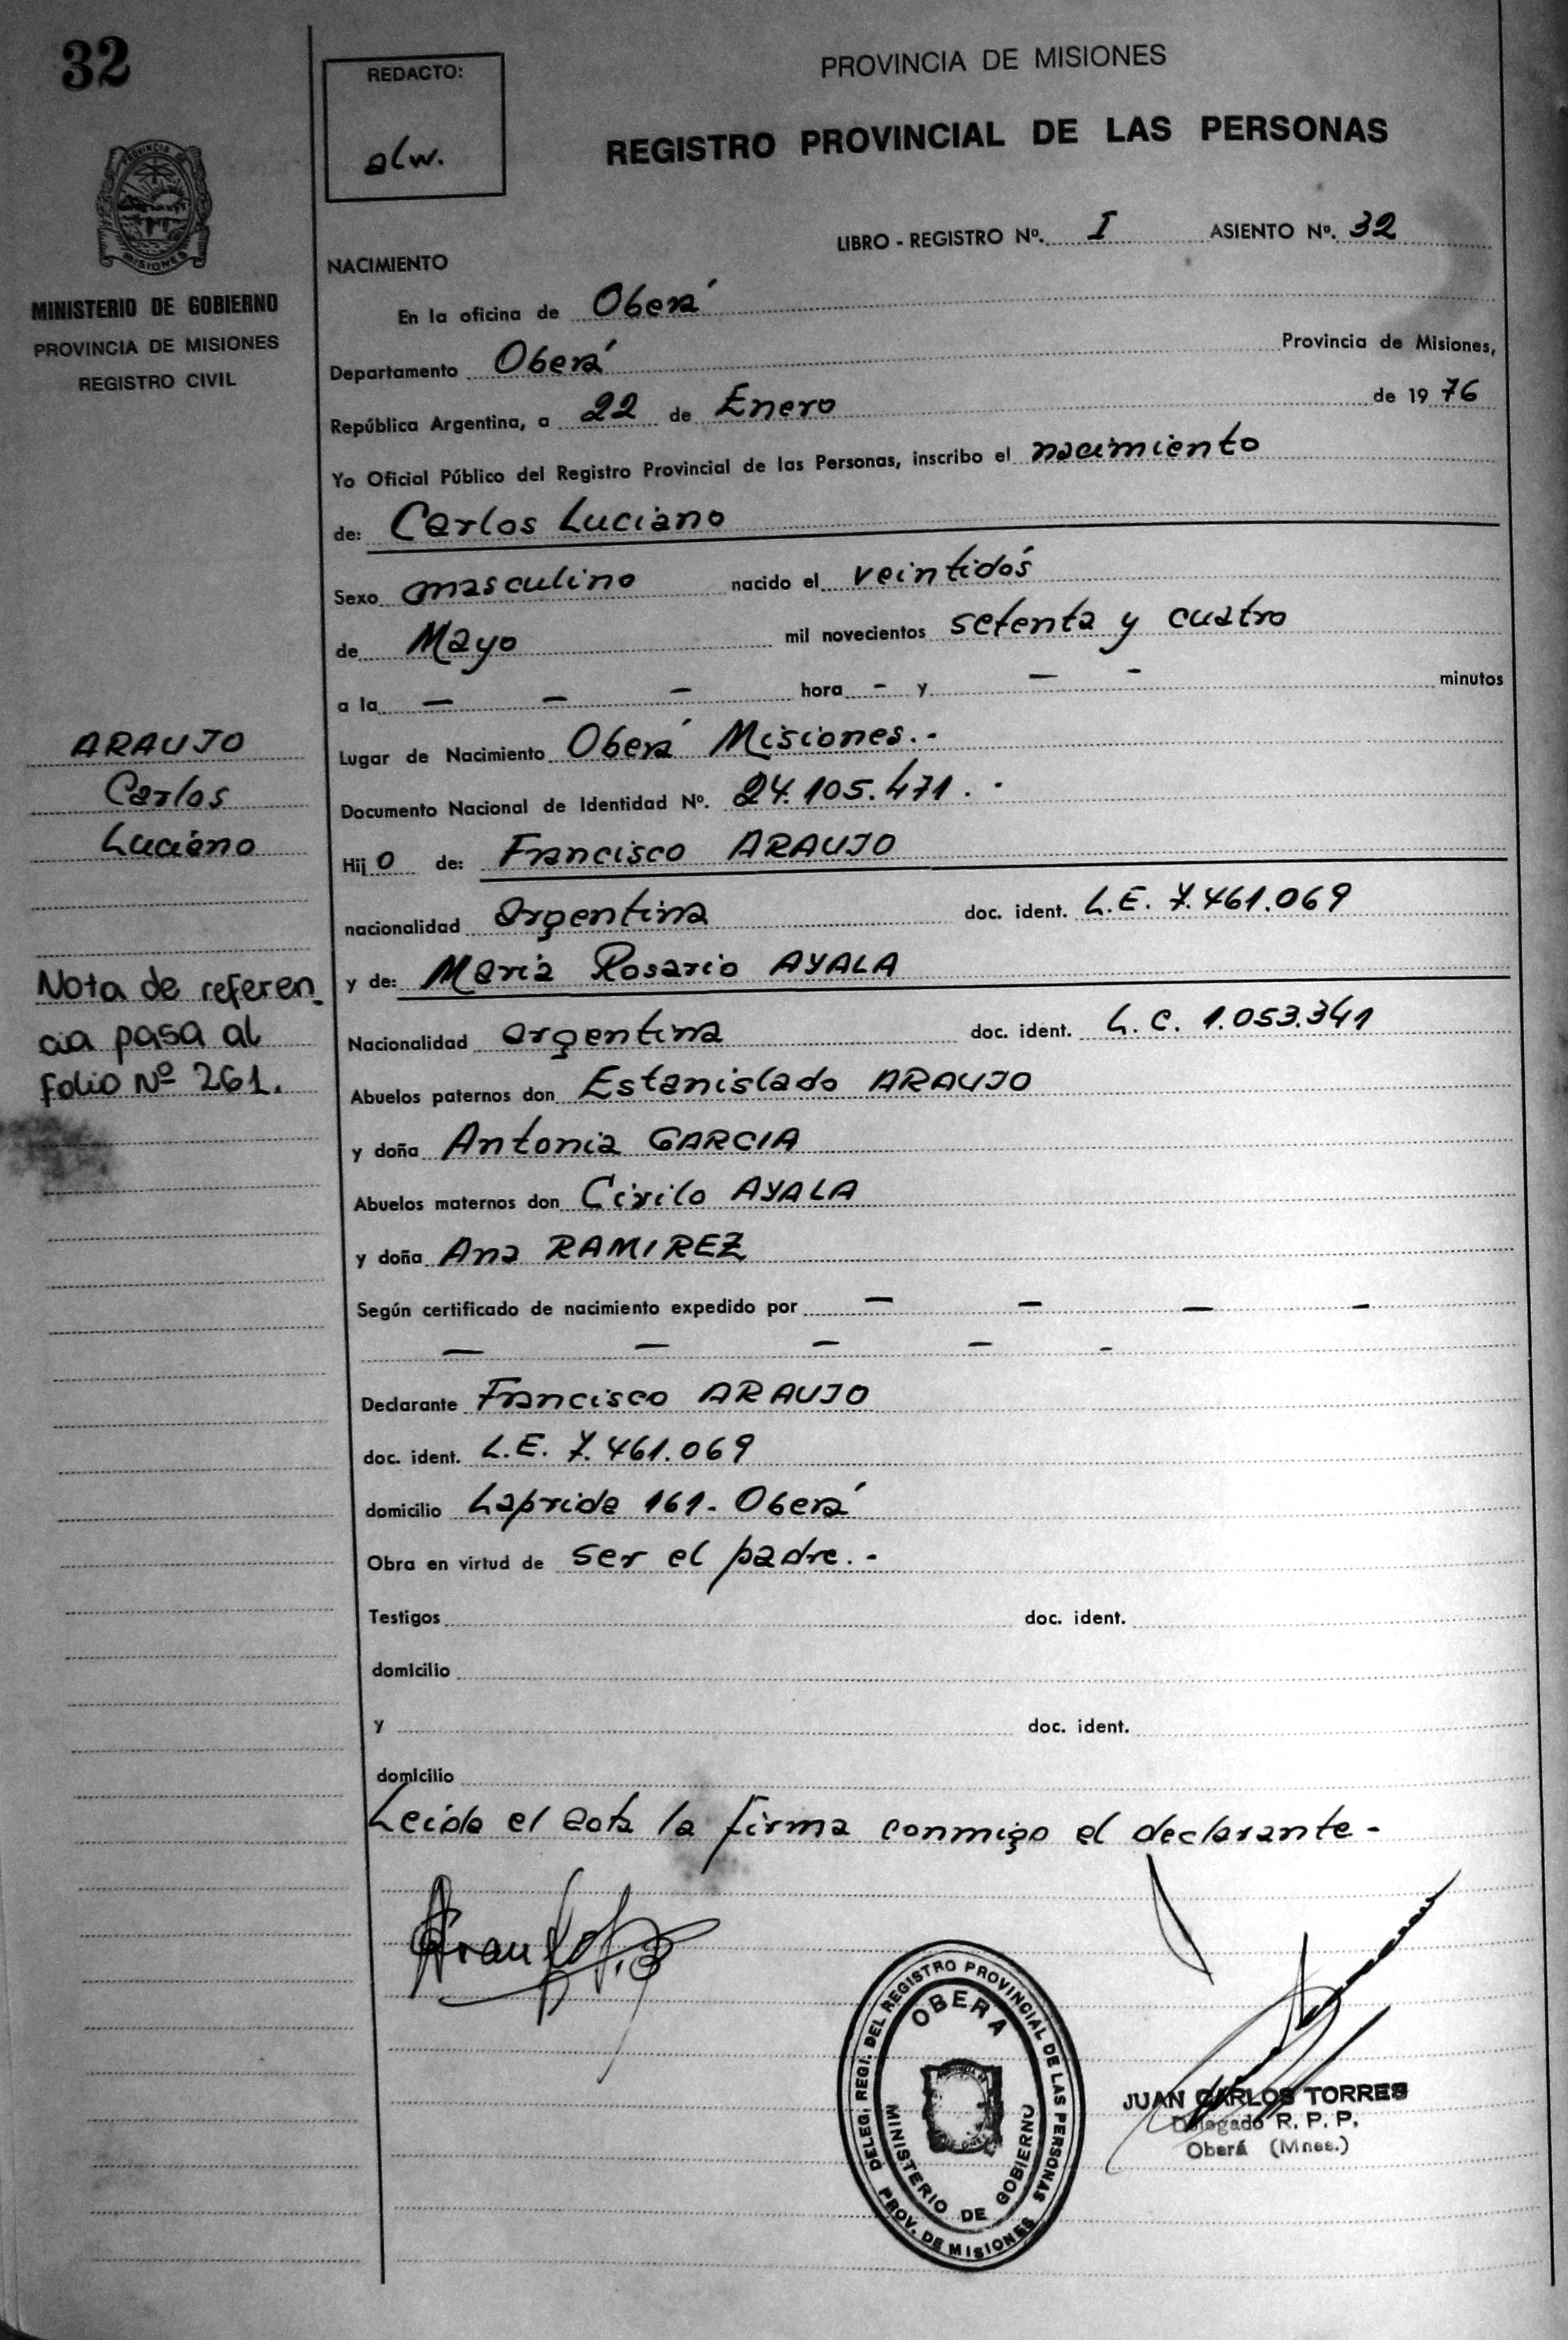 32
REDACTO:
alw.
PROVINCIA DE MISIONES
REGISTRO PROVINCIAL DE LAS PERSONAS
PROVINCIA
MISIONES
MINISTERIO DE GOBIERNO
PROVINCIA DE MISIONES
REGISTRO CIVIL
LIBRO - REGISTRO Nº. I ASIENTO Nº. 32
NACIMIENTO
En la oficina de Oberá
Departamento Oberá Provincia de Misiones,
República Argentina, a 22 de Enero de 1976
Yo Oficial Público del Registro Provincial de las Personas, inscribo el nacimiento
de: Carlos Luciano
Sexo masculino nacido el veintidós
de Mayo mil novecientos setenta y cuatro
a la — — — hora - y — - minutos
Lugar de Nacimiento Oberá Misiones.-
Documento Nacional de Identidad Nº. 24.105.471.-
Hijo de: Francisco ARAUJO
nacionalidad argentina doc. ident. L.E. 7.461.069
y de: Maria Rosario AYALA
Nacionalidad argentina doc. ident. L.C. 1.053.341
Abuelos paternos don Estanislado ARAUJO
y doña Antonia GARCIA
Abuelos maternos don Cirilo AYALA
y doña Ana RAMIREZ
Según certificado de nacimiento expedido por — — — -
— — — — -
Declarante Francisco ARAUJO
doc. ident. L.E. 7.461.069
domicilio Laprida 161- Oberá
Obra en virtud de ser el padre.-
Testigos doc. ident.
domicilio
y doc. ident.
domicilio
Leida el acta la firma conmigo el declarante-
ARAUJO
Carlos
Luciano
Nota de referen
cia pasa al
folio Nº 261.
DELEG. REGI. DEL REGISTRO PROVINCIAL DE LAS PERSONAS
OBERA
MINISTERIO DE GOBIERNO
PROV. DE MISIONES
JUAN CARLOS TORRES
Delegado R. P. P.
Oberá (Mnes.)